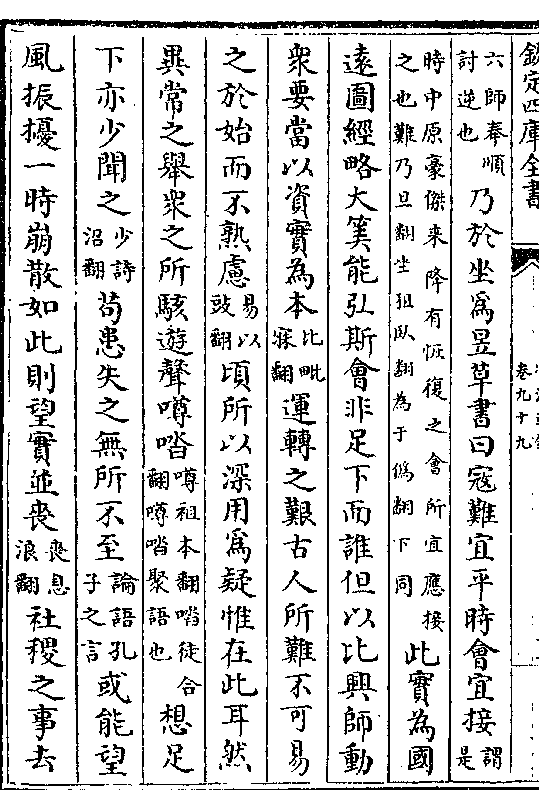 欽定四庫全書
卷九十九
六師奉順討逆也乃於坐爲昱草書曰寇難宜平時會宜接謂是
時中原豪傑来降有恢復之會所宜應接之也難乃旦翻坐徂臥翻為于偽翻下同此實為國
遠圖經略大筭能弘斯會非足下而誰但以比興師動
衆要當以資實為本比毗寐翻運轉之艱古人所難不可易
之於始而不熟慮易以豉翻頃所以深用爲疑惟在此耳然
異常之舉衆之所駭遊聲噂喒噂祖本翻喒徒合翻噂喒聚語也想足
下亦少聞之少詩沼翻苟患失之無所不至論語孔子之言或能望
風振擾一時崩散如此則望實並喪喪息浪翻社稷之事去